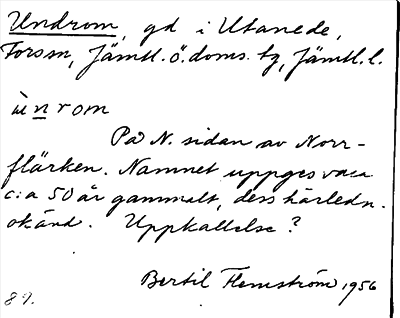 Undrom, gd i Utanede,
Forsm, Jämtl. ö. doms. tg, Jämtl. l.
ùnrom
På N. sidan av Norr-
flärken. Namnet uppges vara
c:a 50 år gammalt, dess härledn.
okänd. Uppkallelse?
Bertil Flemström 1956
89.